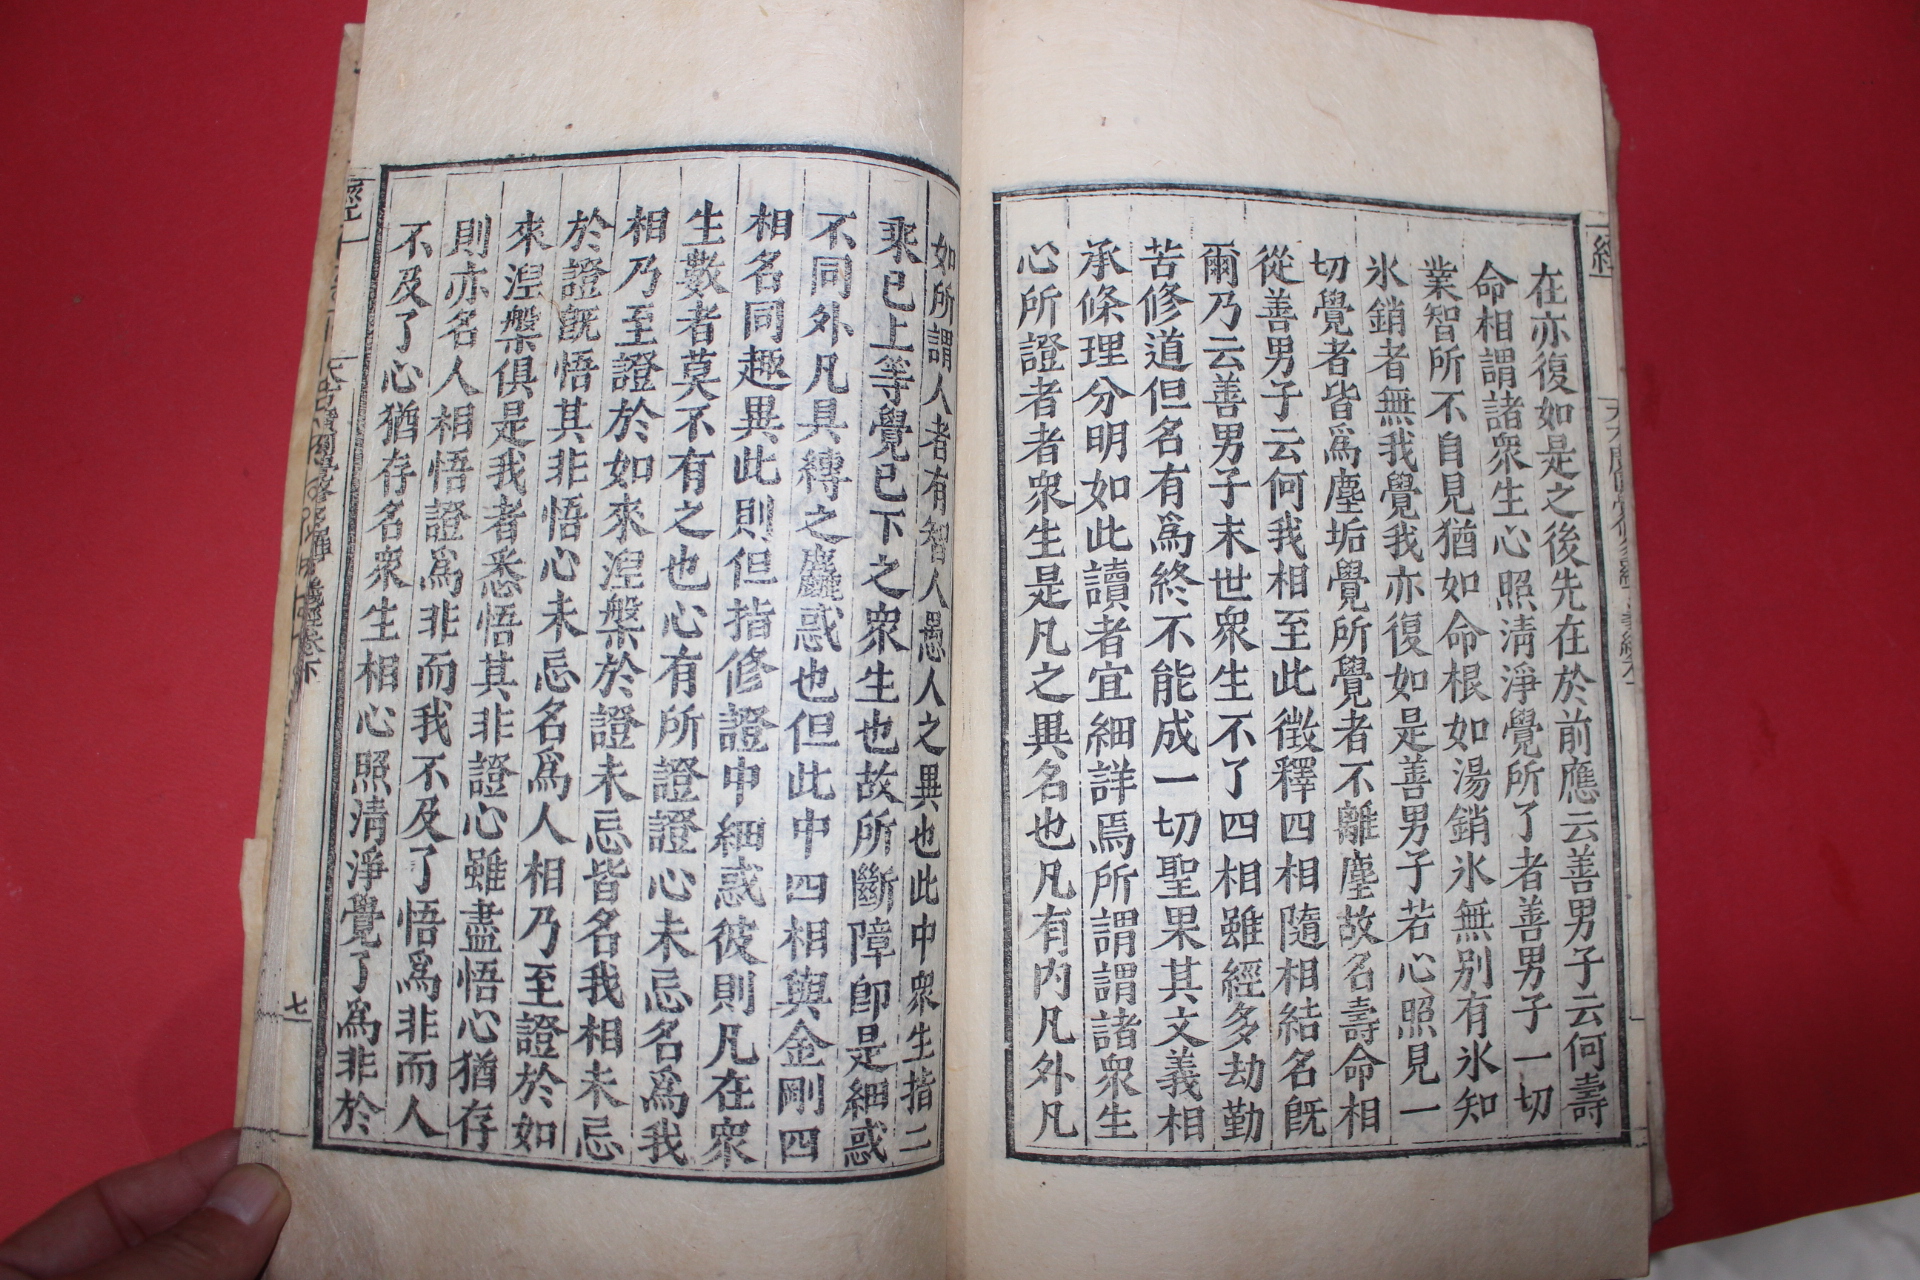 在亦復如是之後先在於前應云善男子云何壽
命相謂諸衆生心照淸淨覺所了者善男子一切
業智所不自見猶如命根如湯銷氷無別有氷知
氷銷者無我覺我亦復如是善男子若心照見一
切覺者皆爲塵垢覺所覺者不離塵故名壽命相
從善男子云何我相至此徴釋四相隨相結名旣
爾乃云善男子末世衆生不了四相雖經多劫勤
苦修道但名有爲終不能成一切聖果其文義相
承條理分明如此讀者宜細詳焉所謂謂諸衆生
心所證者者衆生是凡之異名也凡有內凡外凡
如所謂人者有智人愚人之異也此中衆生指二
乘已上等覺已下之衆生也故所斷障卽是細惑
不同外凡具縛之麤惑也但此中四相與金剛四
相名同趣異此則但指修證中細惑彼則凡在衆
生數者莫不有之也心有所證證心未忘名爲我
相乃至證於如來涅槃於證未忘皆名我相未忘
於證旣悟其非悟心未忘名爲人相乃至證於如
來涅槃俱是我者悉悟其非證心雖盡悟心猶存
則亦名人相悟證爲非而我不及了悟爲非而人
不及了心猶存名衆生相心照清淨覺了爲非於
七